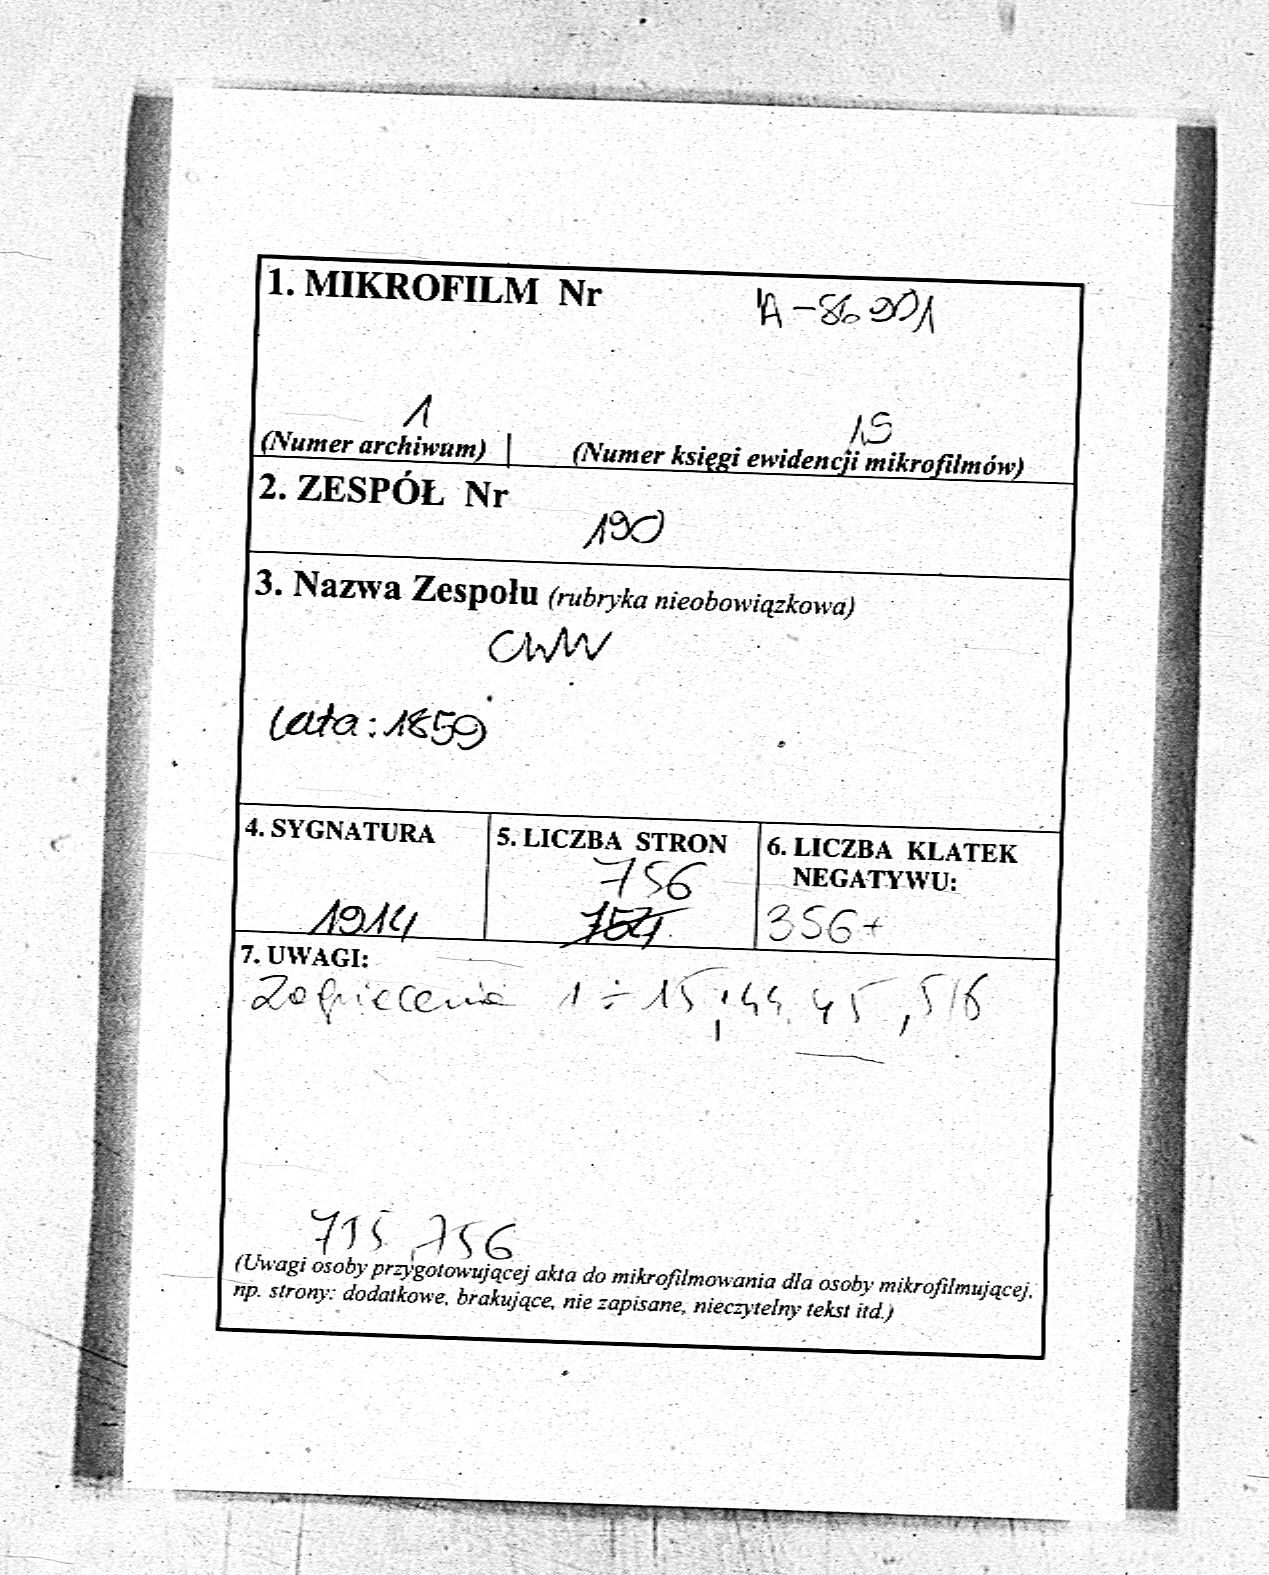 1. MIKROFILM Nr A-86901
1 15
(Numer archiwum) | (Numer księgi ewidencji mikrofilmów)
2. ZESPÓŁ Nr
190
3. Nazwa Zespołu (rubryka nieobowiązkowa)
CWW
lata: 1859
4. SYGNATURA
1914
5. LICZBA STRON
756
754
6. LICZBA KLATEK
NEGATYWU:
356+
7. UWAGI:
Zagniecenia 1÷15, 44. 45, 516
715, 756
(Uwagi osoby przygotowującej akta do mikrofilmowania dla osoby mikrofilmującej,
np. strony: dodatkowe, brakujące, nie zapisane, nieczytelny tekst itd.)